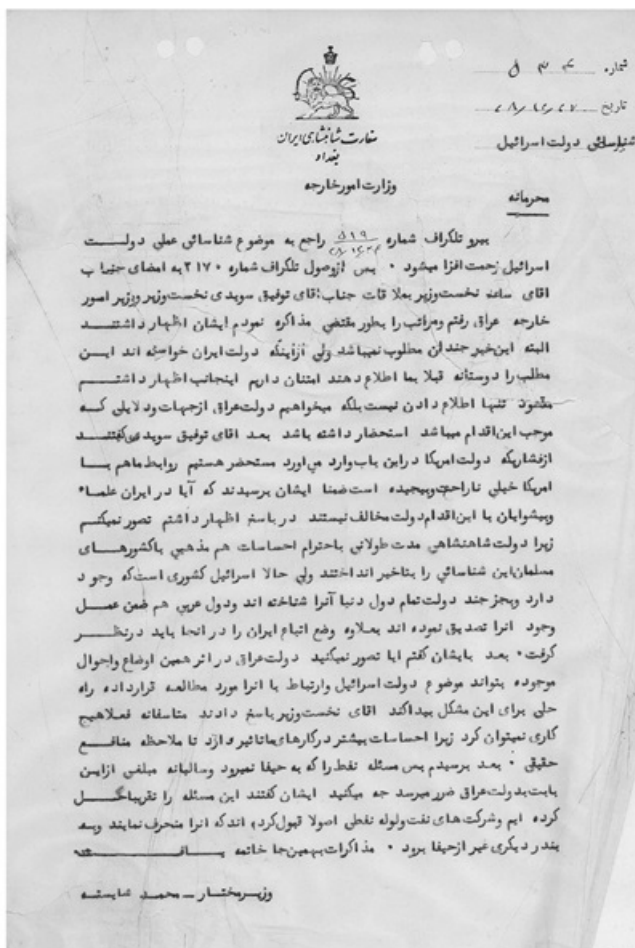 شماره ۵۳۴
تاریخ ۲۸/۱۲/۲۷
شناسائی دولت اسرائیل
سفارت شاهنشاهی ایران
بغداد
وزارت امور خارجه
محرمانه
پیرو تلگراف شماره ۵۱۹ راجع به موضوع شناسائی عملی دولت
اسرائیل زحمت افزا میشود ۰ پس ازوصول تلگراف شماره ۲۱۷۰ به امضای جناب
آقای ساعد نخست وزیر بملاقات جناب آقای توفیق سویدی نخست وزیر ووزیر امور
خارجه عراق رفتم ومراتب را بطور مقتضی مذاکره نمودم ایشان اظهار داشتند
البته این خبر چندان مطلوب نمیباشد ولی ازاینکه دولت ایران خواسته اند این
مطلب را دوستانه قبلا بما اطلاع دهند امتنان داریم اینجانب اظهار داشتم
مقصود تنها اطلاع دادن نیست بلکه میخواهیم دولت عراق ازجهات ودلایلی که
موجب این اقدام میباشد استحضار داشته باشد بعد اقای توفیق سویدی گفتند
ازفشاریکه دولت امریکا دراین باب وارد می اورد مستحضر هستیم روابط ماهم با
امریکا خیلی ناراحت وپیچیده است ضمنا ایشان پرسیدند که آیا در ایران علماء
وپیشوایان با این اقدام دولت مخالف نیستند در پاسخ اظهار داشتم تصور نمیکنم
زیرا دولت شاهنشاهی مدت طولانی باحترام احساسات هم مذهبی باکشورهای
مسلمان این شناسائی را بتاخیر انداختند ولی حالا اسرائیل کشوری است که وجود
دارد وبجز چند دولت تمام دول دنیا آنرا شناخته اند ودول عربی هم ضمن عمل
وجود انرا تصدیق نموده اند بعلاوه وضع اتباع ایران را در انجا باید درنظر
گرفت۰ بعد بایشان گفتم ایا تصور نمیکنید دولت عراق در اثر همین اوضاع واحوال
موجوده بتواند موضوع دولت اسرائیل وارتباط با انرا مورد مطالعه قرارداده راه
حلی برای این مشکل پیداکند اقای نخست وزیر پاسخ دادند متاسفانه فعلاهیچ
کاری نمیتوان کرد زیرا احساسات بیشتر درکارهای ماتاثیر دارد تا ملاحظه منافع
حقیقی ۰ بعد پرسیدم پس مسئله نفط را که به حیفا نمیرود وسالیانه مبلغی ازاین
بابت بدولت عراق ضرر میرسد چه میکنید ایشان گفتند این مسئله را تقریباحل
کرده ایم وشرکت های نفت ولوله نفطی اصولا قبول کرده اندکه انرا منحرف نمایند وبه
بندر دیگری غیر ازحیفا برود ۰ مذاکرات بهمین جا خاتمه یافت
وزیر مختار ـ محمد شایسته